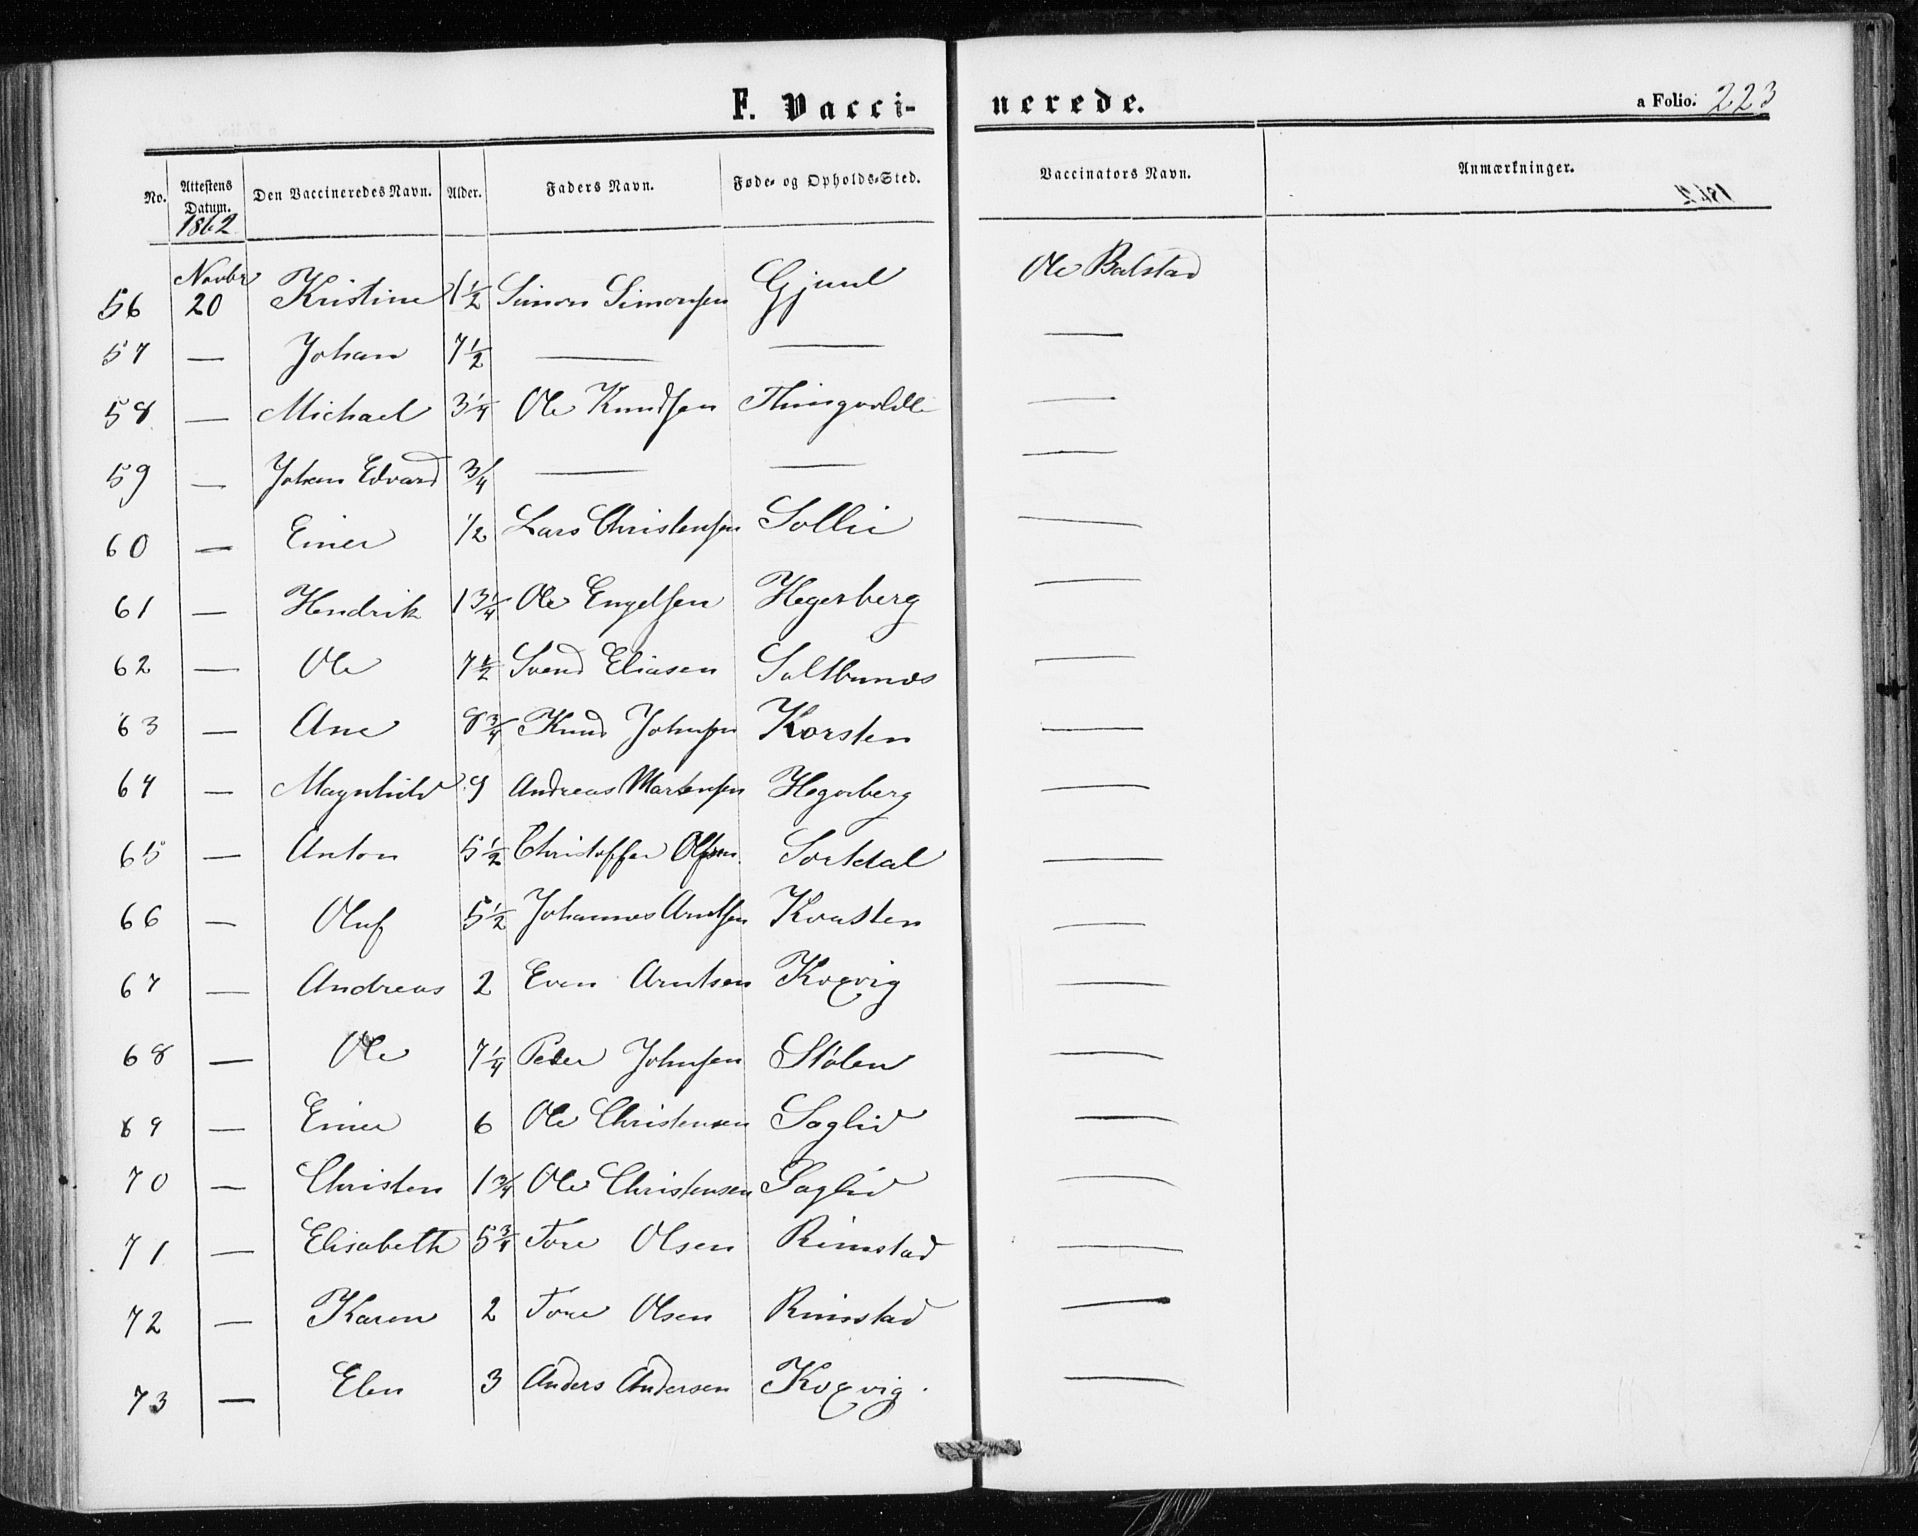 F. Vacci- nerede. a Folio. 223
No. Attestens Datum. Den Vaccineredes Navn. Alder. Faders Navn. Føde- og Opholds-Sted. Vaccinators Navn. Anmærkninger.
1862
56 Novbr 20 Kristine 1½ Simon Simonsen Gjuul Ole Balstad
57 — Johan 7½ — — —
58 — Michael 3¼ Ole Knudsen —
59 — Johan Edvard ¾ — — —
60 — Einer ½ Lars Christensen Sollie —
61 — Hendrik 1¾ Ole Engelsen Hegerberg —
62 — Ole 7½ Svend Eliasen Saltbunds —
63 — Ane 8¾ Knud Johnsen Korsten —
64 — Magnhild 9 Andreas Mortensen Hegerberg —
65 — Anton 5½ Christoffer Olsen Sortdal —
66 — Oluf 5½ Johannes Arntsen Kvasten —
67 — Andreas 2 Even Arntsen —
68 — Ole 7¼ Peder Johnsen Stølen —
69 — Einer 6 Ole Christensen Saglid —
70 — Christen 1¾ Ole Christensen Saglid —
71 — Elisabeth 5¾ Tore Olsen Rimstad —
72 — Karen 2 Tore Olsen Rimstad —
73 — Elen 3 Anders Andersen —